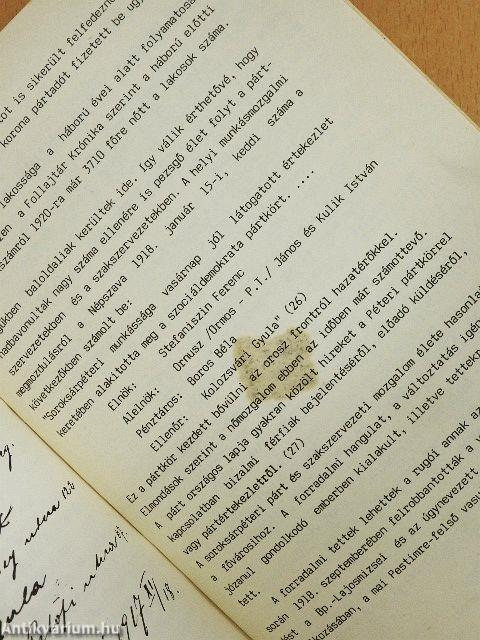 ot is sikerült felfedezn
korona pártadót fizetett be ug
lakossága a háború évei alatt folyamatose
en a Follajtár Krónika szerint a háború előtti
számról 1920-ra már 3710 főre nőtt a lakosok száma.
gükben baloldaliak kerültek ide. Így válik érthetővé, hogy
hadbavonultak nagy száma ellenére is pezsgő élet folyt a párt-
szervezetekben és a szakszervezetekben. A helyi munkásmozgalmi
megmozdulásról a Népszava 1918. január 15-i, keddi száma a
következőkben számolt be:
"Soroksárpéteri munkássága vasárnap jól látogatott értekezlet
keretében alakította meg a szociáldemokrata pártkört. ....
Elnök: Stefaniszin Ferenc
Alelnök: Ornusz /Ormos - P.I./ János és Kulik István
Pénztáros: Boros Béla
Ellenőr: Kolozsvári Gyula" (26)
Ez a pártkör kezdett bővülni az orosz frontról hazatérőkkel.
Elmondások szerint a nőmozgalom ebben az időben már számottevő.
A párt országos lapja gyakran közölt híreket a Péteri pártkörrel
kapcsolatban bizalmi férfiak bejelentéséről, előadó küldéséről,
vagy pártértekezletről. (27)
A soroksárpéteri párt és szakszervezeti mozgalom élete hasonla
a fővárosihoz. A forradalmi hangulat, a változtatás igén
józanul gondolkodó emberben kialakult, illetve tettekp
tett.
A forradalmi tettek lehettek a rugói annak az
során 1918. szeptemberében felrobbantották a v
ást a Bp.-Lajosmizsei és az úgynevezett
kozásában, a mai Pestimre-felső vasu
utca
1917 XII/18.
Antikvárium.hu